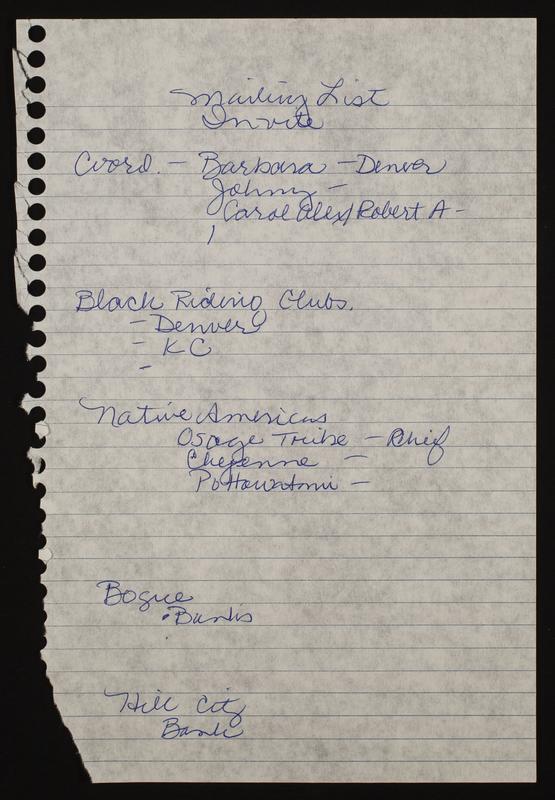 Mailing List
Invite
Coord. - Barbara - Denver
Johnny -
Carol Alex/Robert A -
Black Riding Clubs.
- Denver
- KC
-
Native Americas
Osage Tribe - Chief
Cheyenne -
Pottowatomi -
Bogue
• Banks
Hill City
Bank